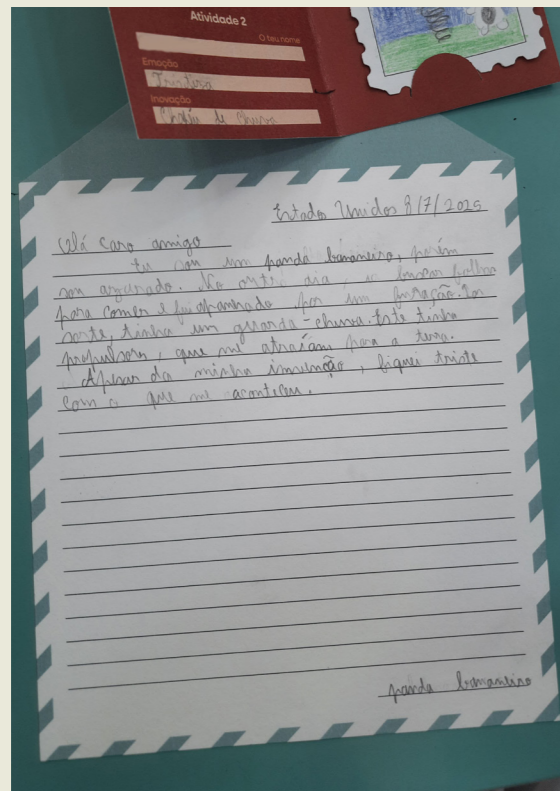 Atividade 2
O teu nome
Emoção
Tristeza
Inovação
Chapéu de Chuva
Estados Unidos 8/7/2025
Olá caro amigo
Eu sou um panda bananeiro, porém
sou azarado. No outro dia, ia buscar folhas
para comer e fui apanhado por um furacão. Por
sorte, tinha um guarda-chuva. Este tinha
propulsores, que me atraíam para a terra.
Apesar da minha invenção, fiquei triste
com o que me aconteceu.
panda bananeiro